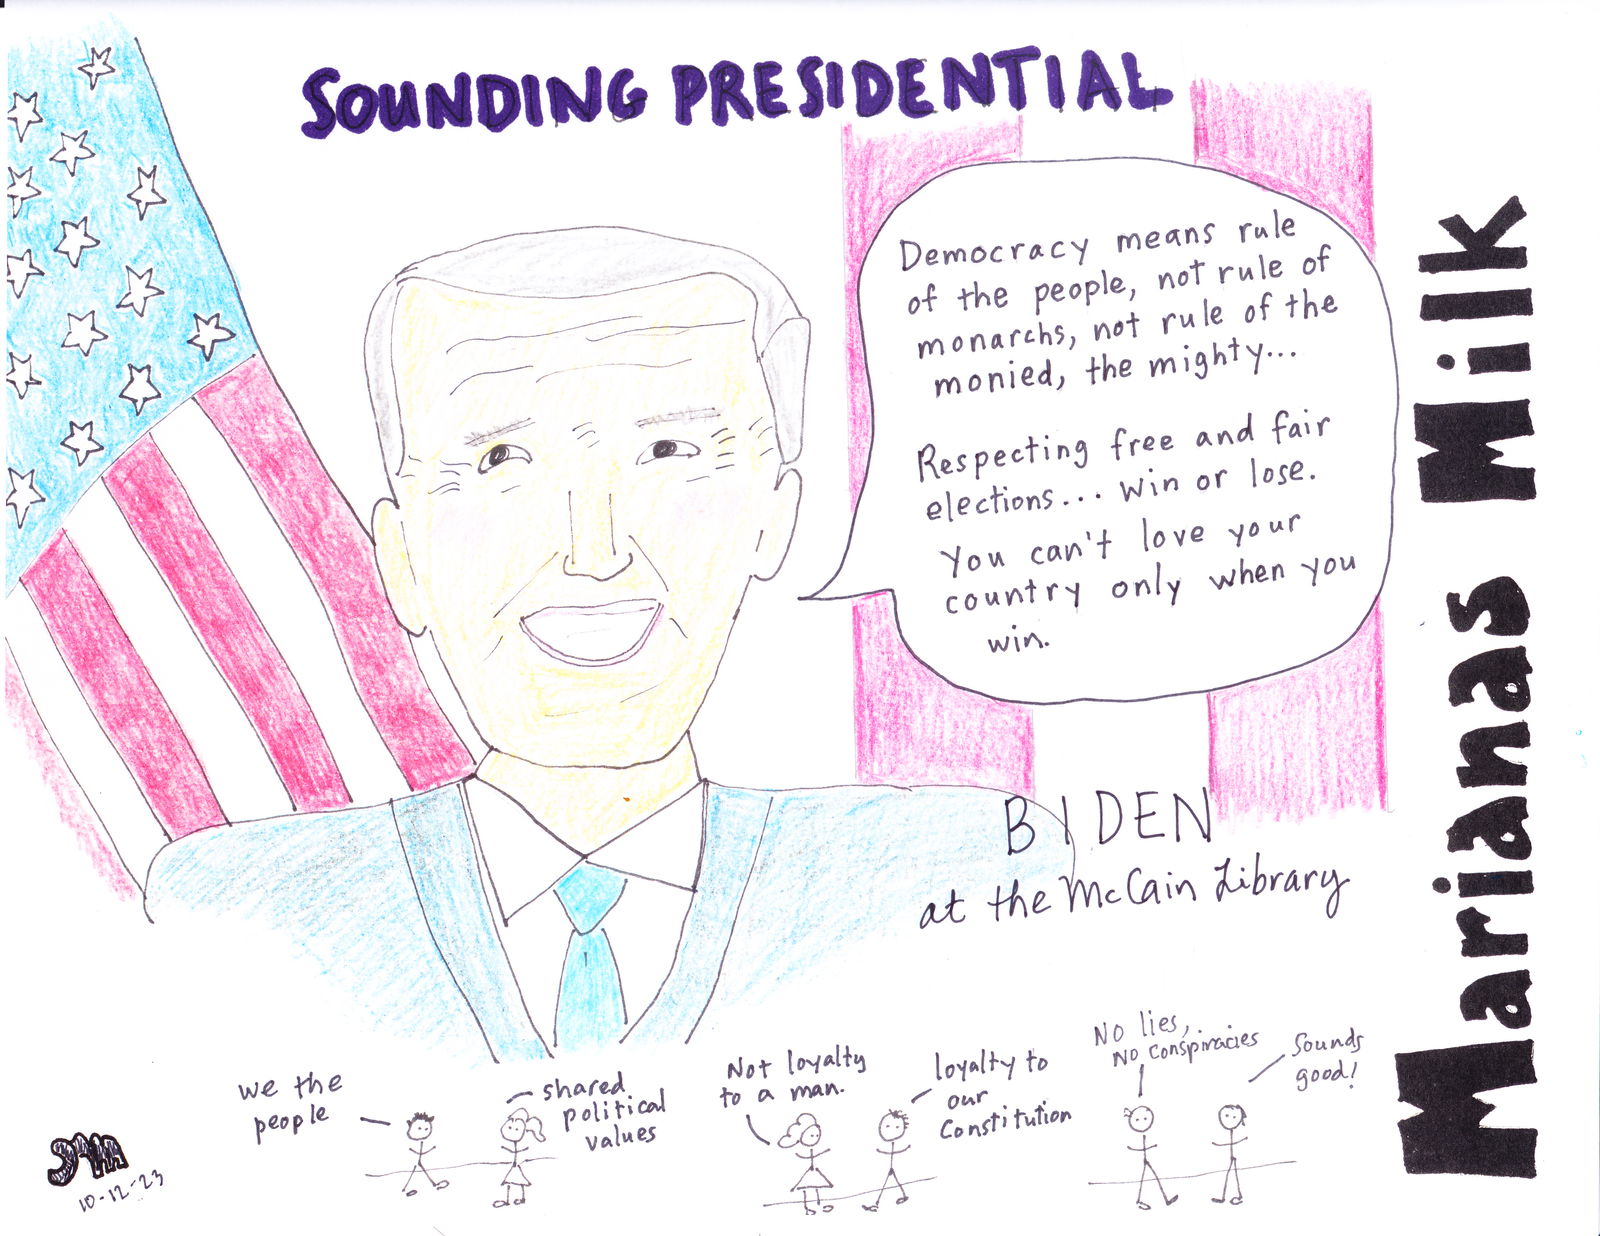 SOUNDING PRESIDENTIAL
Democracy means rule
of the people, not rule of
monarchs, not rule of the
monied, the mighty...
Respecting free and fair
elections... win or lose.
You can't love your
country only when you
win.
BIDEN
at the McCain Library
Marianas Milk
we the
people
shared
political
values
Not loyalty
to a man.
loyalty to
our
Constitution
No lies,
No conspiracies
Sounds
good!
10-12-23